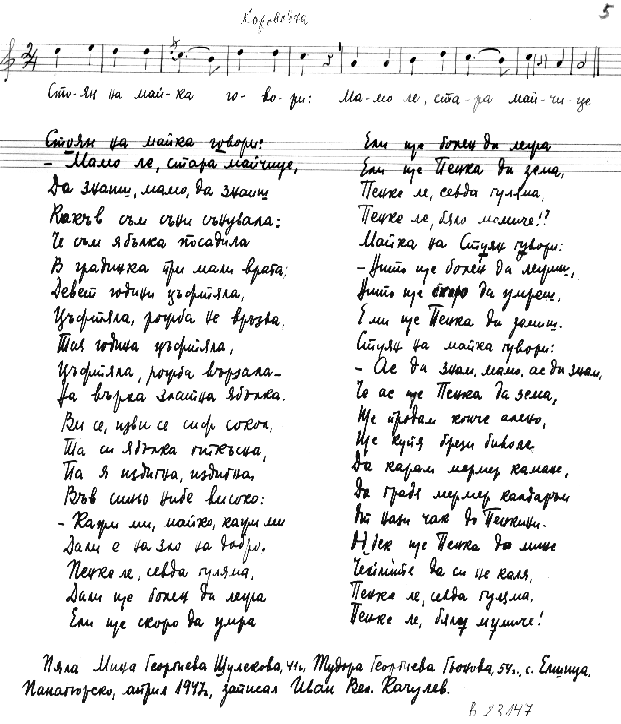 Хороводна
5
Сто-ян на май-ка го-во-ри: Ма-мо ле, ста-ра май-чи-це
Стоян на майка говори:
– Мамо ле, стара майчице,
Да знаиш, мамо, да знаиш
Какъв съм сън сънувала:
Че съм ябълка посадила
В градинка три мали врата:
Девет години цъфтяла,
Цъфтяла, рожба не връзва.
Тая година цъфтяла,
Цъфтяла, рожба вързала –
На върха златна ябълка.
Ви се, изви се сиф сокол,
Та си ябълка откъсна,
Па я издигна, издигна,
Във синьо небе високо:
– Кажи ми, майко, кажи ми
Дали е на зло на добро.
Пенке ле, севда гуляма,
Дали ще болен да лежа
Ели ще скоро да умра
Ели ще болен да лежа
Ели ще Пенка да зема,
Пенке ле, севда гуляма,
Пенке ле, бяло момиче!?
Майка на Стуян гувори:
– Нито ще болен да лежиш,
Нито ще скоро да умреш,
Ели ще Пенка да земиш.
Стуян на майка гувори:
– Ас да знам, мамо, ас да знам,
Че ас ще Пенка да зема,
Ще продам конче алено,
Ще купя брези биволе
Да карам мермер камане,
Да градя мермер калдаръм
От нази чак до Пенкини.
Адек ще Пенка да мине
Чехлите да си не каля,
Пенке ле, севда гуляма,
Пенке ле, бяло мумиче!
Пяла Мица Георгиева Шулекова, 41 г., Тудора Георгиева Гьонова, 54 г., с. Елшица,
Панагюрско, април 1947 г., записал Иван Вел. Качулев.
В 23147